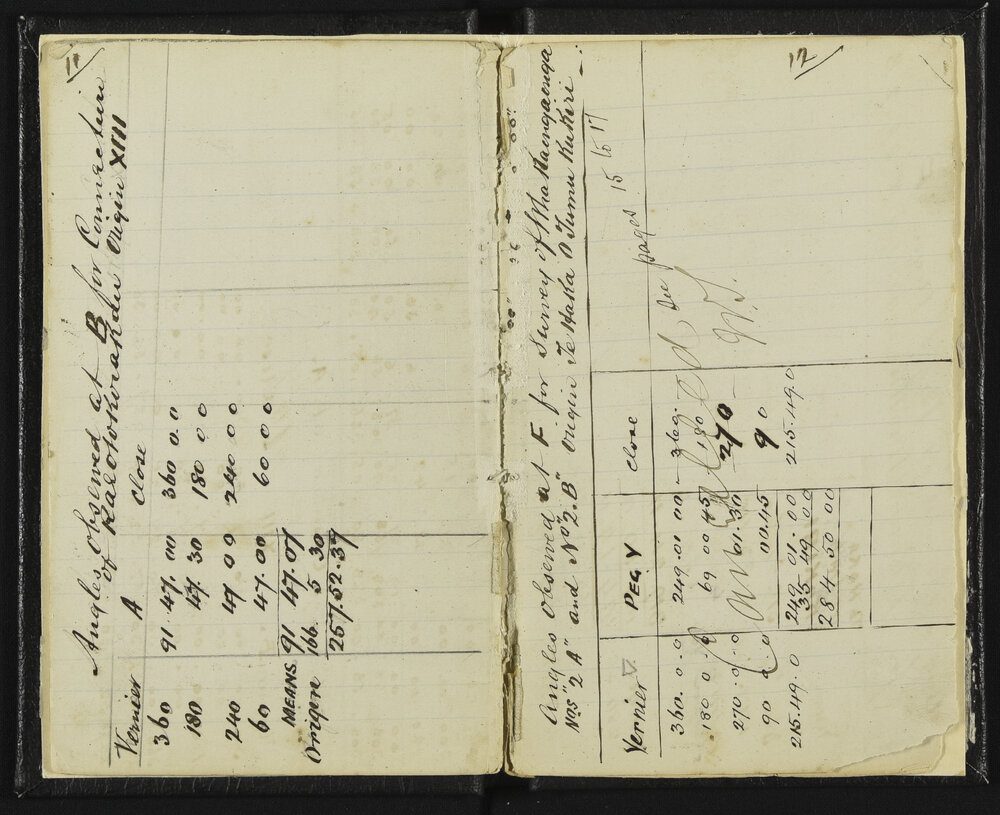 11
Angles observed at B for Connection
of Karotokorakdu Origin XIII
Vernier A Close
360 91 47. 00 360 0. 0
180 47. 30 180 0 0
240 47 00 240 0 0
60 47. 00 60 0 0
MEANS 91 47. 07
Origen 166 5 30
257. 52. 37
12
Angles observed at F for Survey of
Nos "2 A" and No "2. B" Origin Te Haka O Tumu Kukiri
Vernier PEG Y Close
360. 0. 0 249. 01 00 360.
180 0. 0 69 00 45 180
270. 0. 0 01. 30 270
90 0. 0 00. 45 90
215. 49. 0 249 01. 00 215. 49. 0
35 49 00
284. 50 00
See pages 15 to 17